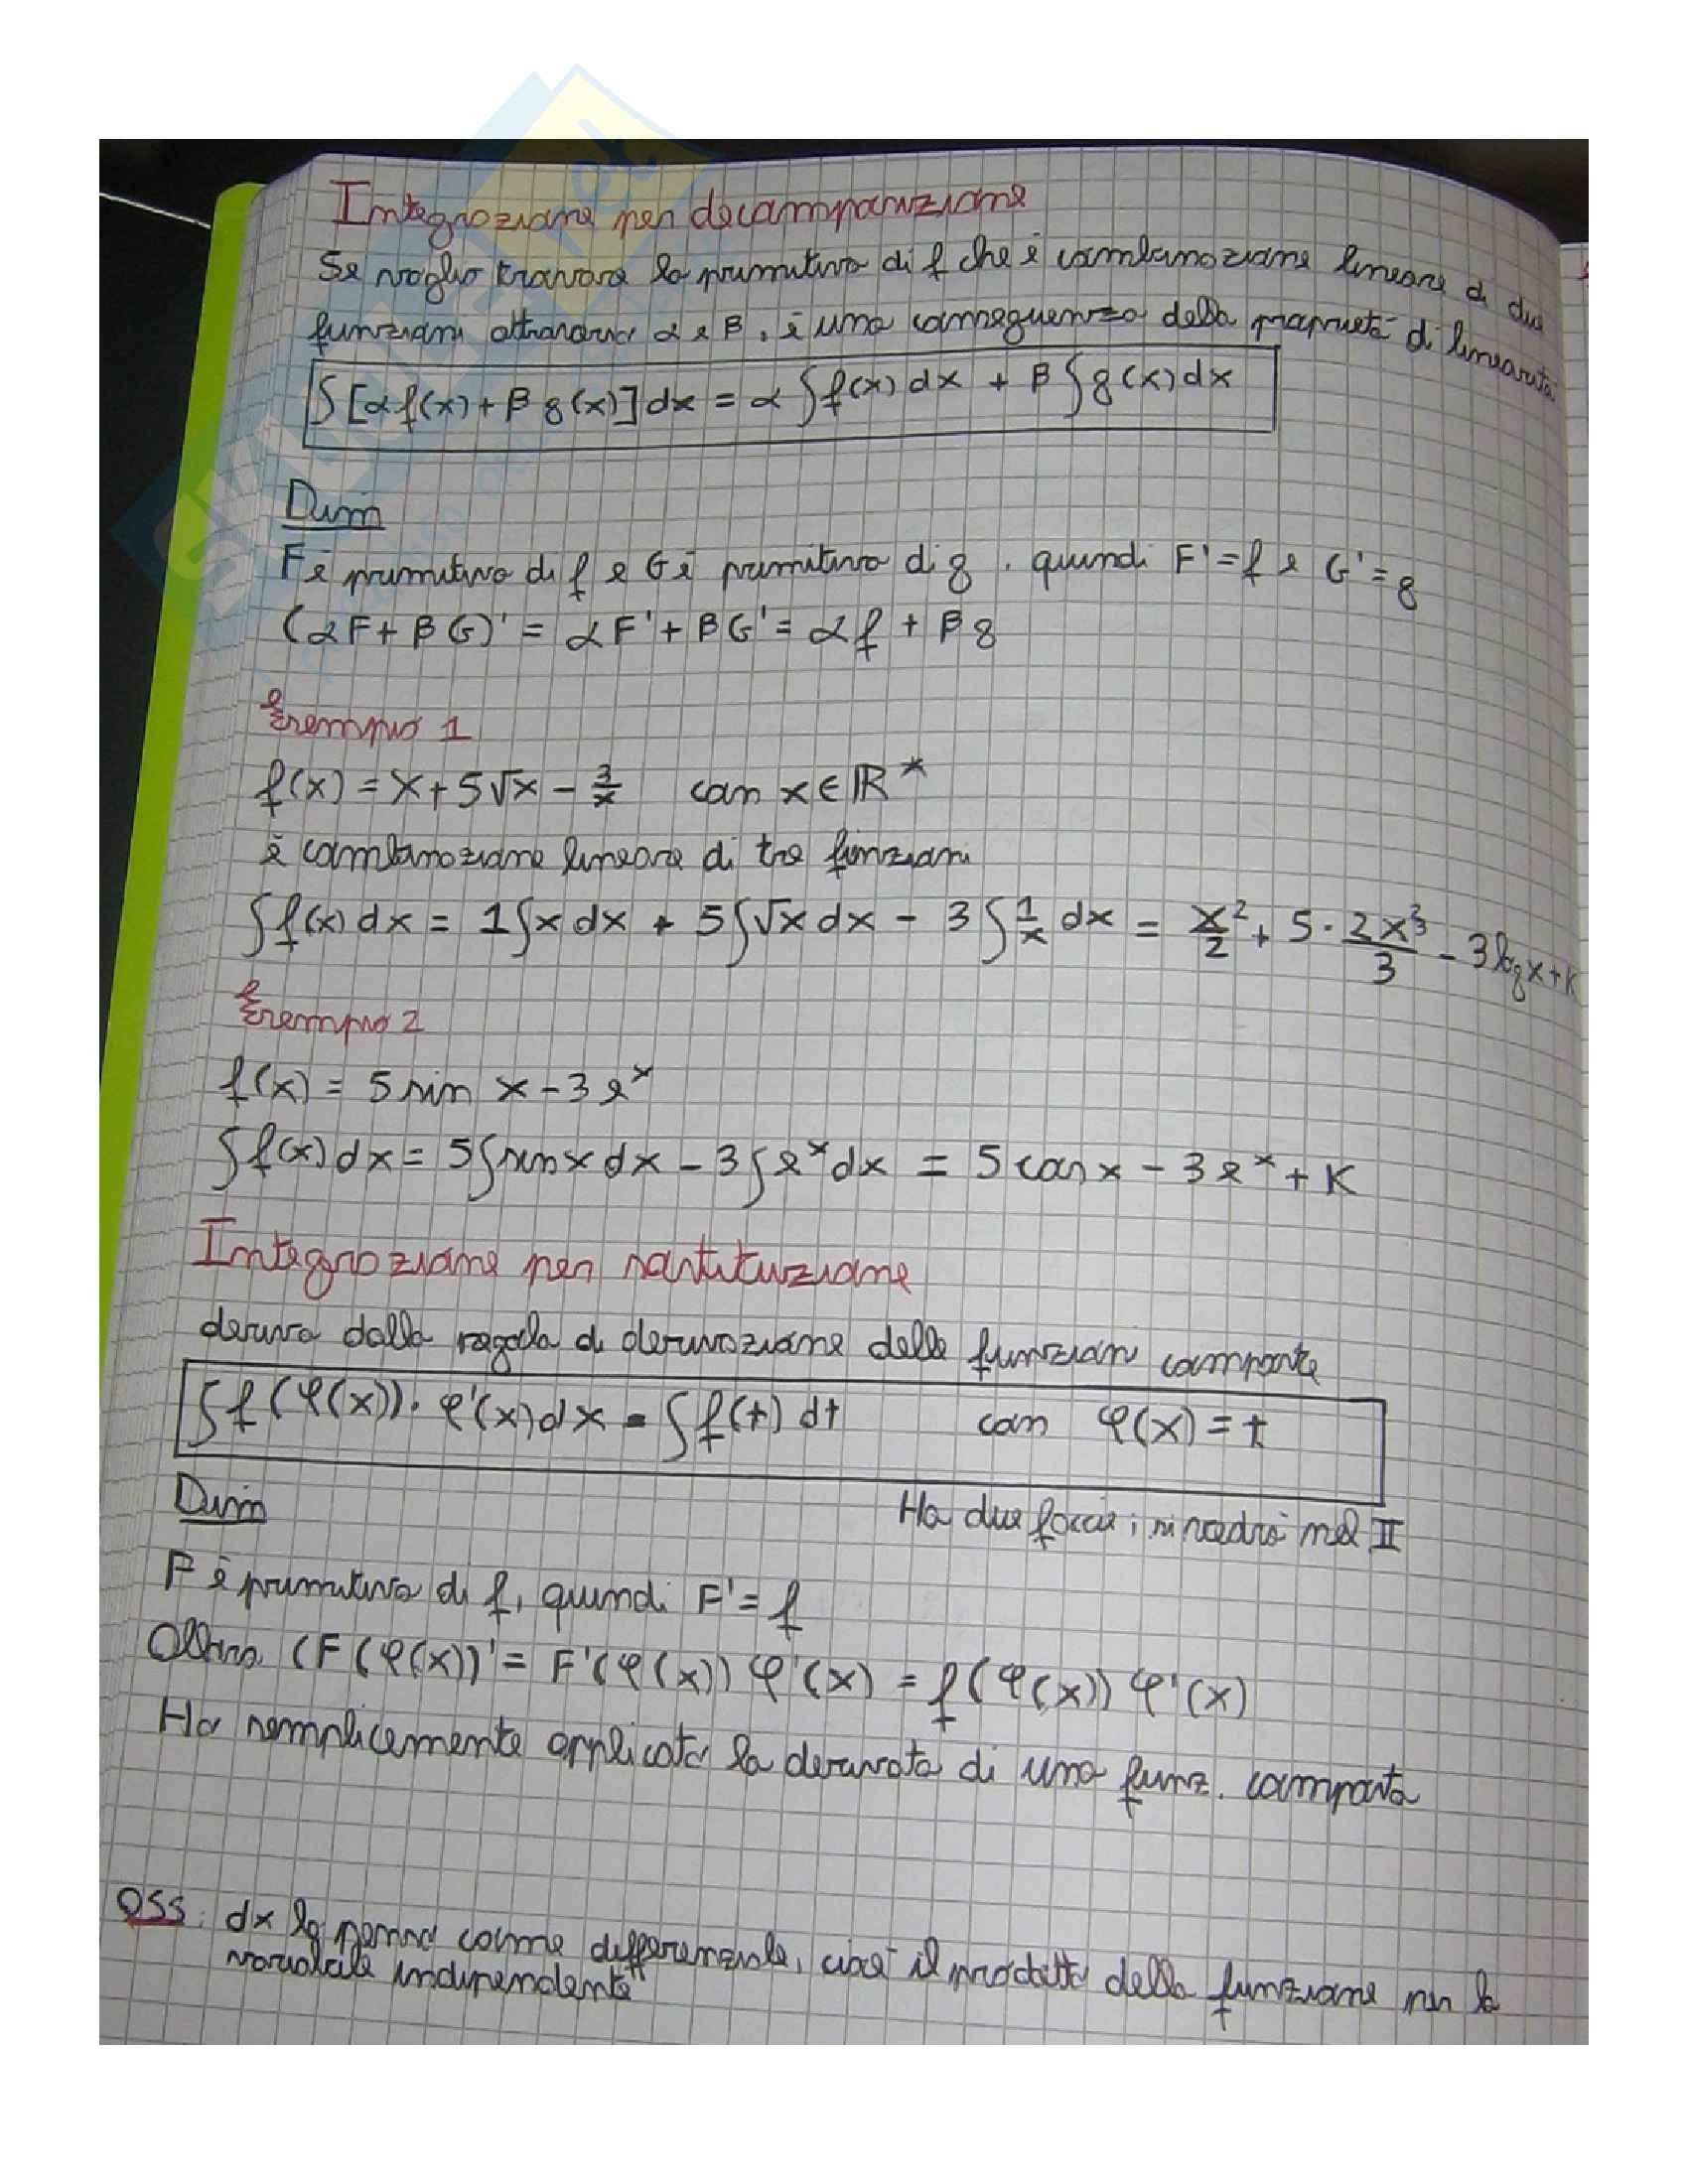 Integrazione per decomposizione
Se voglio trovare la primitiva di f che è combinazione lineare di due
funzioni attraverso α e β, è una conseguenza della proprietà di linearità
∫[αf(x)+βg(x)]dx = α∫f(x)dx + β∫g(x)dx
Dim
F è primitiva di f e G è primitiva di g, quindi F'=f e G'=g
(αF+βG)' = αF'+βG' = αf+βg
Esempio 1
f(x) = x+5√x - 3/x con x∈ℝ*
è combinazione lineare di tre funzioni
∫f(x)dx = 1∫xdx + 5∫√xdx - 3∫1/x dx = x²/2 + 5·2x³/3 - 3logx+K
Esempio 2
f(x) = 5sin x-3e^x
∫f(x)dx = 5∫senxdx - 3∫e^xdx = 5cosx - 3e^x + K
Integrazione per sostituzione
deriva dalla regola di derivazione delle funzioni composte
∫f(φ(x))·φ'(x)dx = ∫f(t)dt con φ(x)=t
Dim
Ha due facce; si vedrà nel II
F è primitiva di f, quindi F'=f
Allora (F(φ(x))' = F'(φ(x))φ'(x) = f(φ(x))φ'(x)
Ho semplicemente applicato la derivata di una funz. composta
OSS: dx lo penso come differenziale, cioè il prodotto della funzione per la
variabile indipendente"